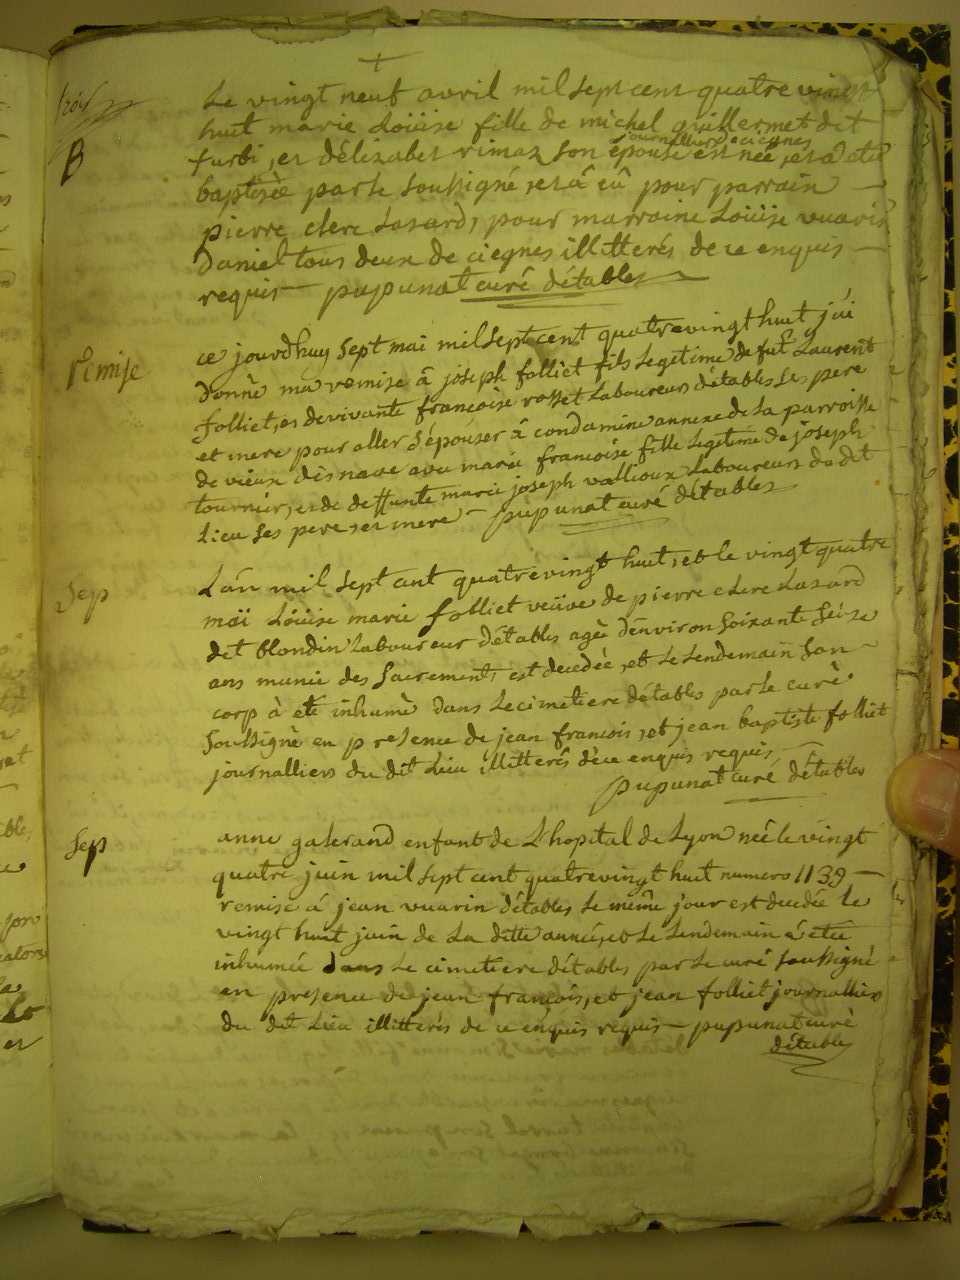 +
B
Le vingt neuf avril mil sept cent quatre vingt
huit marie Loüise fille de michel guillermet dit
furbi, et délizabet rimaz son épouse est née, et a étée
journalliers à ciegnes
baptisée par le soussigné, et â eû pour parrain
pierre clerc Lazard, pour marraine Loüise vuarin
Daniel tous deux de ciegnes illitterés de ce enquis
requis pupunat curé détables
remise
ce jourdhuy sept mai mil sept cent quatrevingt huit j'ai
donné ma remise â joseph folliet fils legitime de fut Laurent
folliet, et devivante francoise rosset Laboureurs détables ses pere
et mere pour aller sépouser â condamine annexe de la parroisse
de vieux disnave avec marie francoise fille legitime de joseph
tournier, et de deffunte marie joseph vallioux Laboureurs du dit
Lieu ses pere, et mere pupunat curé détables
Sep
L'an mil sept cent quatrevingt huit, et le vingt quatre
maï Loüise marie folliet veüve de pierre clerc Lazard
dit blondin Laboureur détables agée dénviron soixante seize
ans munie des sacrements est decedée, et le lendemain son
corp à eté inhumé dans le cimetiere détables par le curé
soussigné en presence de jean francois, et jean baptiste folliet
journalliers du dit Lieu illitterés déce enquis requis
pupunat curé détables
Sep
anne galerand enfant de L'hopital de Lyon neé le vingt
quatre juin mil sept cent quatrevingt huit numero 1139
remise á jean vuarin détables le même jour est decedée le
vingt huit juin de la ditte année, et le lendemain á etée
inhumée dans le cimetiere détables par le curé soussigné
en presence de jean francois, et jean folliet journalliers
du dit Lieu illitterés de ce enquis requis pupunat curé
détables